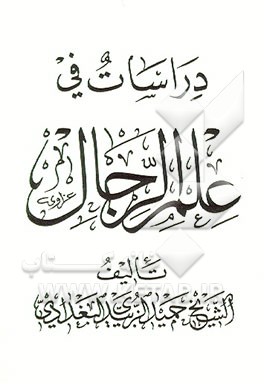 دِرَاسَاتٌ في
عِلْمِ الرِّجَالِ
تَأْلِيفُ
الشَّيْخ حَمِيد البَغْدَادِي